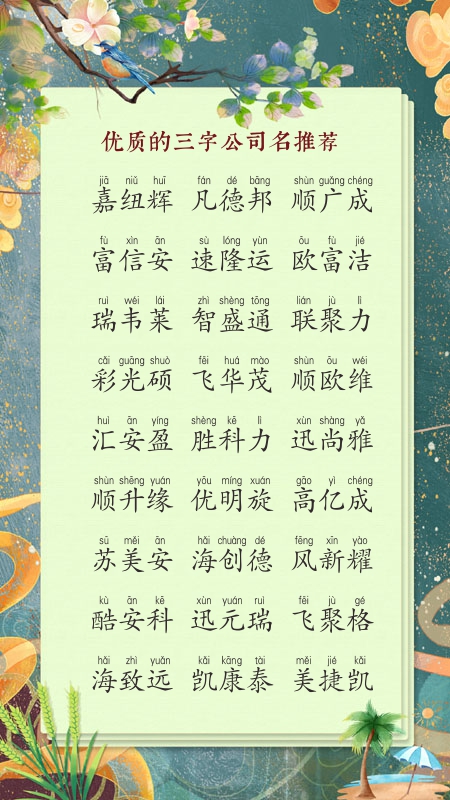 优质的三字公司名推荐
jiā niǔ huī fán dé bāng shùn guǎng chéng
嘉纽辉 凡德邦 顺广成
fù xìn ān sù lóng yùn ōu fù jié
富信安 速隆运 欧富洁
ruì wéi lái zhì shèng tōng lián jù lì
瑞韦莱 智盛通 联聚力
cǎi guāng shuò fēi huá mào shùn ōu wéi
彩光硕 飞华茂 顺欧维
huì ān yíng shèng kē lì xùn shàng yǎ
汇安盈 胜科力 迅尚雅
shùn shēng yuán yōu míng xuán gāo yì chéng
顺升缘 优明旋 高亿成
sū měi ān hǎi chuàng dé fēng xīn yào
苏美安 海创德 风新耀
kù ān kē xùn yuán ruì fēi jù gé
酷安科 迅元瑞 飞聚格
hǎi zhì yuǎn kǎi kāng tài měi jié kǎi
海致远 凯康泰 美捷凯